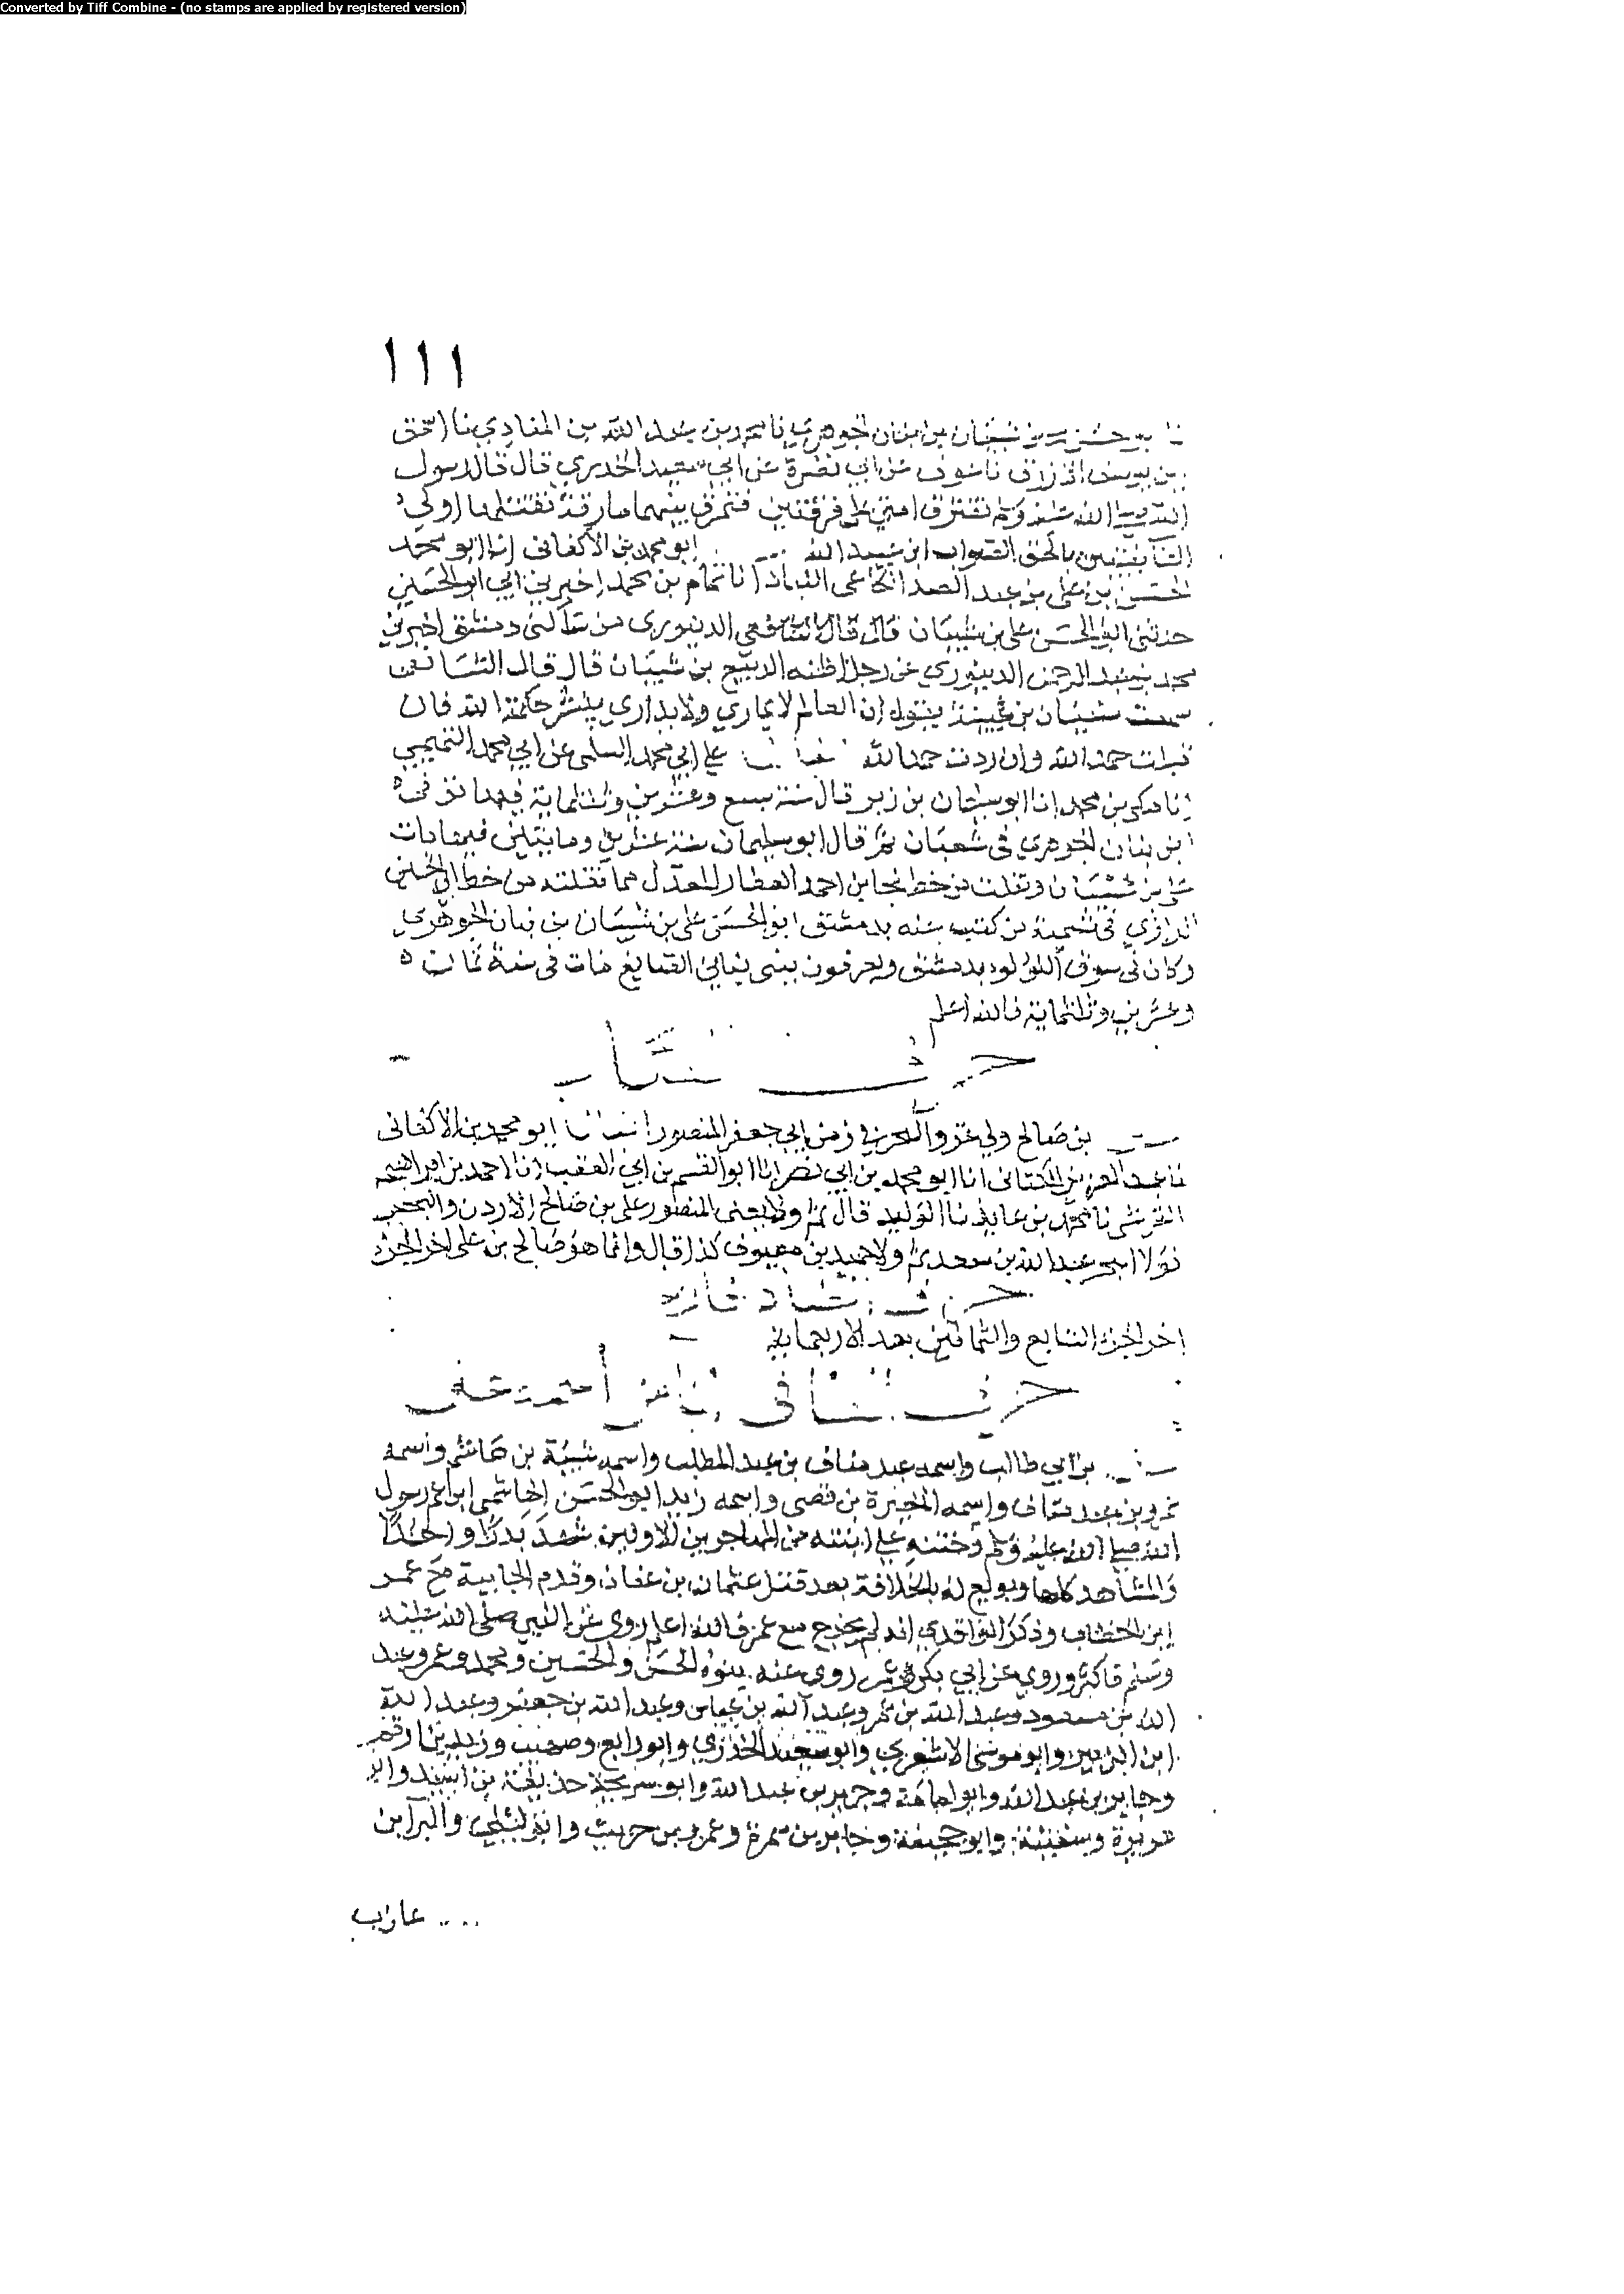 Converted by Tiff Combine - (no stamps are applied by registered version)
١١١
شيبان بن بنان الجوهري نا محمد بن عبد الله بن المنادي نا اسحق
بن يوسف الازرق نا عوف عن ابي نضرة عن ابي سعيد الخدري قال قال رسول
الله صلى الله عليه وسلم تفترق امتي فرقتين فتمرق بينهما مارقة تقتلها اولى
الطائفتين بالحق الصواب ابن عبيد الله ابو محمد بن الاكفاني انا ابو محمد
الحسن بن علي بن عبد الصمد انا تمام بن محمد اخبرني ابي ابو الحسين
حدثني ابو الحسن علي بن شيبان قال قال الدينوري من ساكني دمشق اخبرني
محمد بن عبد الرحمن الدينوري عن رجل اظنه الربيع بن شيبان قال قال الشافعي
سمعت سفيان بن عيينة يقول ان العالم لا يماري ولا يداري ينشر حكمة الله فان
قبلت حمد الله وان ردت حمد الله على ابي محمد السلمي عن ابي محمد التميمي
انا مكي بن محمد انا ابو سليمان بن زبر قال سنة سبع وعشرين وثلثماية فيها توفي
ابن بنان الجوهري في شعبان ثم قال ابو سليمان سنة عشرين ومايتين فيها مات
علي بن شيبان ونقلت من خط نجا بن احمد العطار المعدل مما نقلته من خط ابي الحسين
الرازي في تسمية من كتب عنه بدمشق ابو الحسن علي بن شيبان بن بنان الجوهري
وكان في سوق اللولو بدمشق ويعرفون ببني الصايغ مات في سنة ثمان
وعشرين وثلثماية فالله اعلم
حرف
بن صالح ولي غزو البحر في زمن ابي جعفر المنصور ابو محمد بن الاكفاني
نا عبد العزيز الكتاني انا ابو محمد بن ابي نصر انا ابو القسم بن ابي العقب انا احمد بن ابراهيم
القرشي نا محمد بن عايذ نا الوليد قال ثم ولى يعني المنصور علي بن صالح الاردن والبحر
عبد الله بن سعد ثم ولا حميد بن معيوف كذا قال وانما هو صالح بن علي اخر الجزء
حرف
اخر الجزء السابع والثمانين بعد الاربعماية
حرف
بن ابي طالب واسمه عبد مناف بن عبد المطلب واسمه شيبة بن هاشم واسمه
عمرو بن عبد مناف واسمه المغيرة بن قصي واسمه زيد ابو الحسن الهاشمي ابن عم رسول
الله صلى الله عليه وسلم وختنه على ابنته من المهاجرين الاولين شهد بدرا واحدا
والمشاهد كلها وبويع له بالخلافة بعد قتل عثمان بن عفان وقدم الجابية مع عمر
ابن الخطاب وذكر الواقدي انه لم يخرج مع عمر فالله اعلم روى عن النبي صلى الله عليه
وسلم فاكثر وروى عن ابي بكر وعمر روى عنه بنوه الحسن والحسين ومحمد وعمر وعبد
الله بن مسعود وعبد الله بن عمر وعبد الله بن عباس وعبد الله بن جعفر وعبد الله
ابن الزبير وابو موسى الاشعري وابو سعيد الخدري وابو رافع وصهيب وزيد بن ارقم
وجابر بن عبد الله وابو امامة وجرير بن عبد الله وابو سريحة حذيفة بن اسيد وابو
هريرة وسفينة وابو جحيفة وجابر بن سمرة وعمرو بن حريث وابو ليلى والبرا بن
عازب